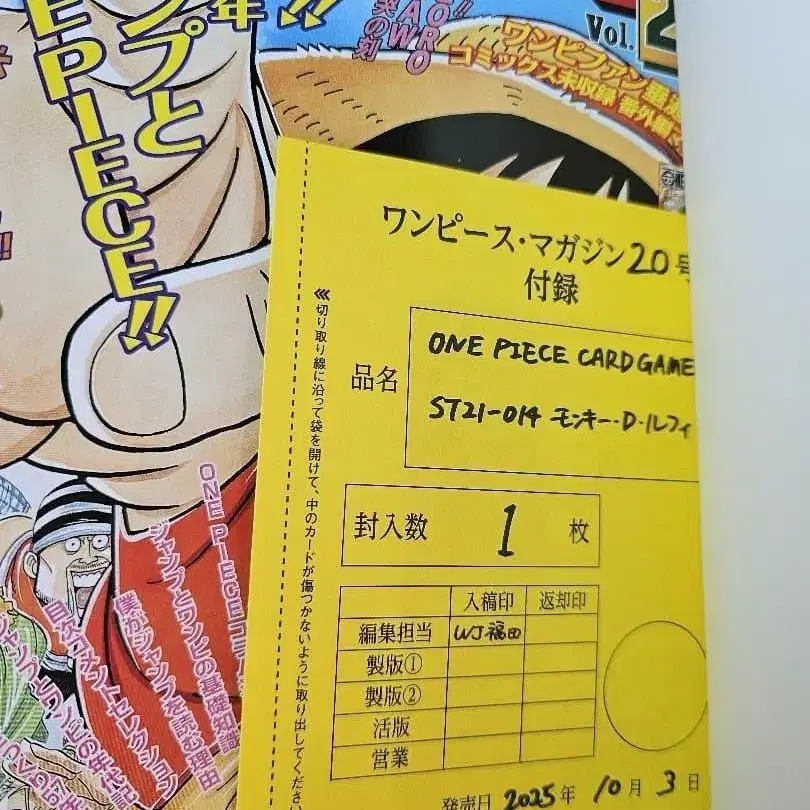 年
ンプと
EPIECE!!
Vol.2
ワンピファン
コミックス未収録 番外編
ワンピース・マガジン20号
付録
《切り取り線に沿って袋を開けて、中のカードが傷つかないように取り出してください
品名
ONE PIECE CARD GAME
ST21-014 モンキー・D・ルフィ
封入数 1 枚
入稿印 返却印
編集担当 WJ福田
製版①
製版②
活版
営業
発売日 2025年 10月 3日
ONE PIECE コラ
ジャンプとワンピの基礎知識
僕がジャンプを読む理由
ジャンプとワンピの年代記